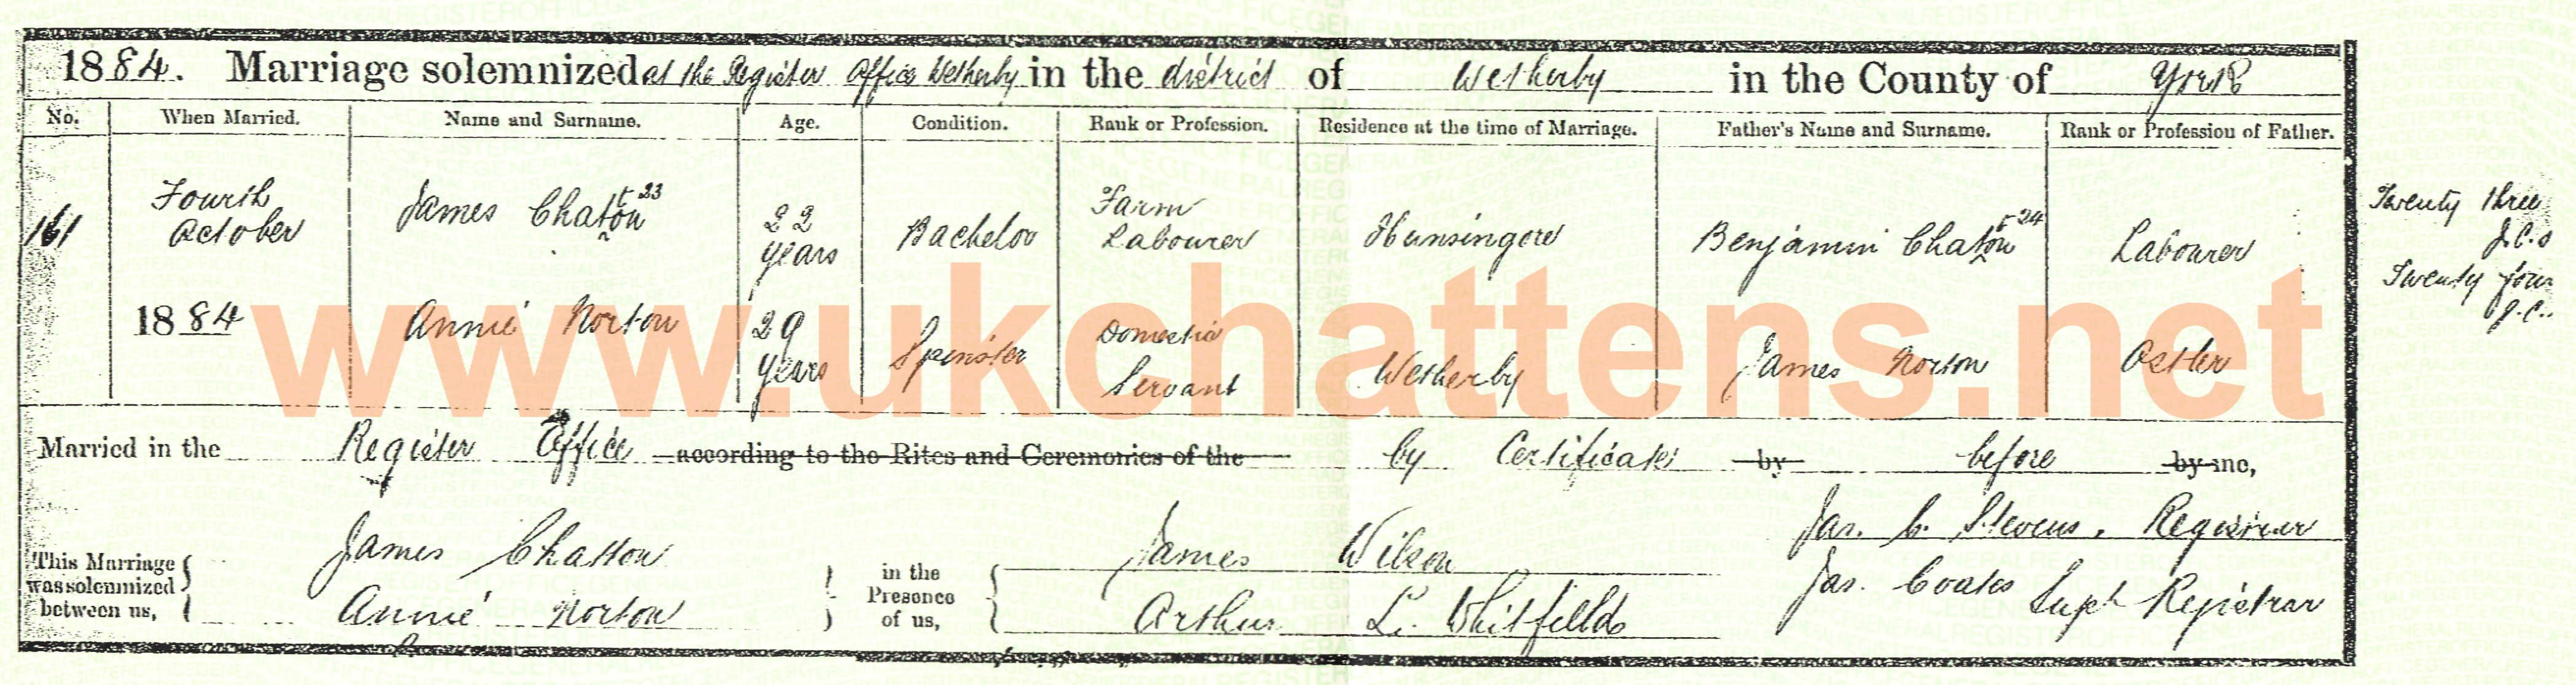 1884. Marriage solemnized at the Register Office Wetherby in the district of Wetherby in the County of York
No. When Married. Name and Surname. Age. Condition. Rank or Profession. Residence at the time of Marriage. Father's Name and Surname. Rank or Profession of Father.
161 Fourth October 1884 James Chaton t 23 22 years Bachelor Farm Labourer Hunsingore Benjamin Chaton t 24 Labourer
Annie Norton 29 years Spinster Domestic Servant Wetherby James Norton Ostler
Twenty three
J.C.
Twenty four
J.C.
www.ukchattens.net
Married in the Register Office according to the Rites and Ceremonies of the by Certificate by before by me,
This Marriage was solemnized between us, James Chatton in the Presence of us, James Wilson Jas. C. Stevens, Registrar
Annie Norton Arthur L. Whitfield Jas. Coates Supt Registrar